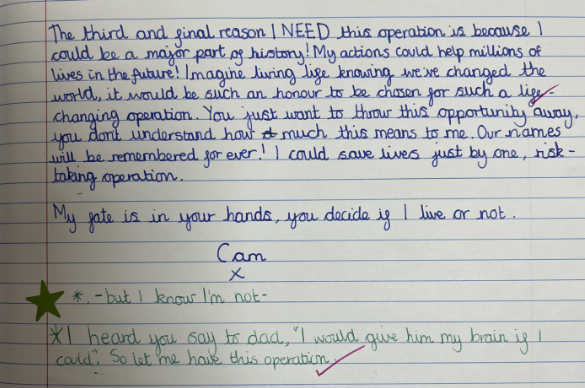 The third and final reason I NEED this operation is because I
could be a major part of history! My actions could help millions of
lives in the future! Imagine living life knowing we've changed the
world, it would be such an honour to be chosen for such a life-
changing operation. You just want to throw this opportunity away,
you dont understand how much this means to me. Our names
will be remembered for ever! I could save lives just by one, risk-
taking operation.
My fate is in your hands, you decide if I live or not.
Cam
x
*, -but I know I'm not-
*I heard you say to dad, "I would give him my brain if I
could". So let me have this operation.